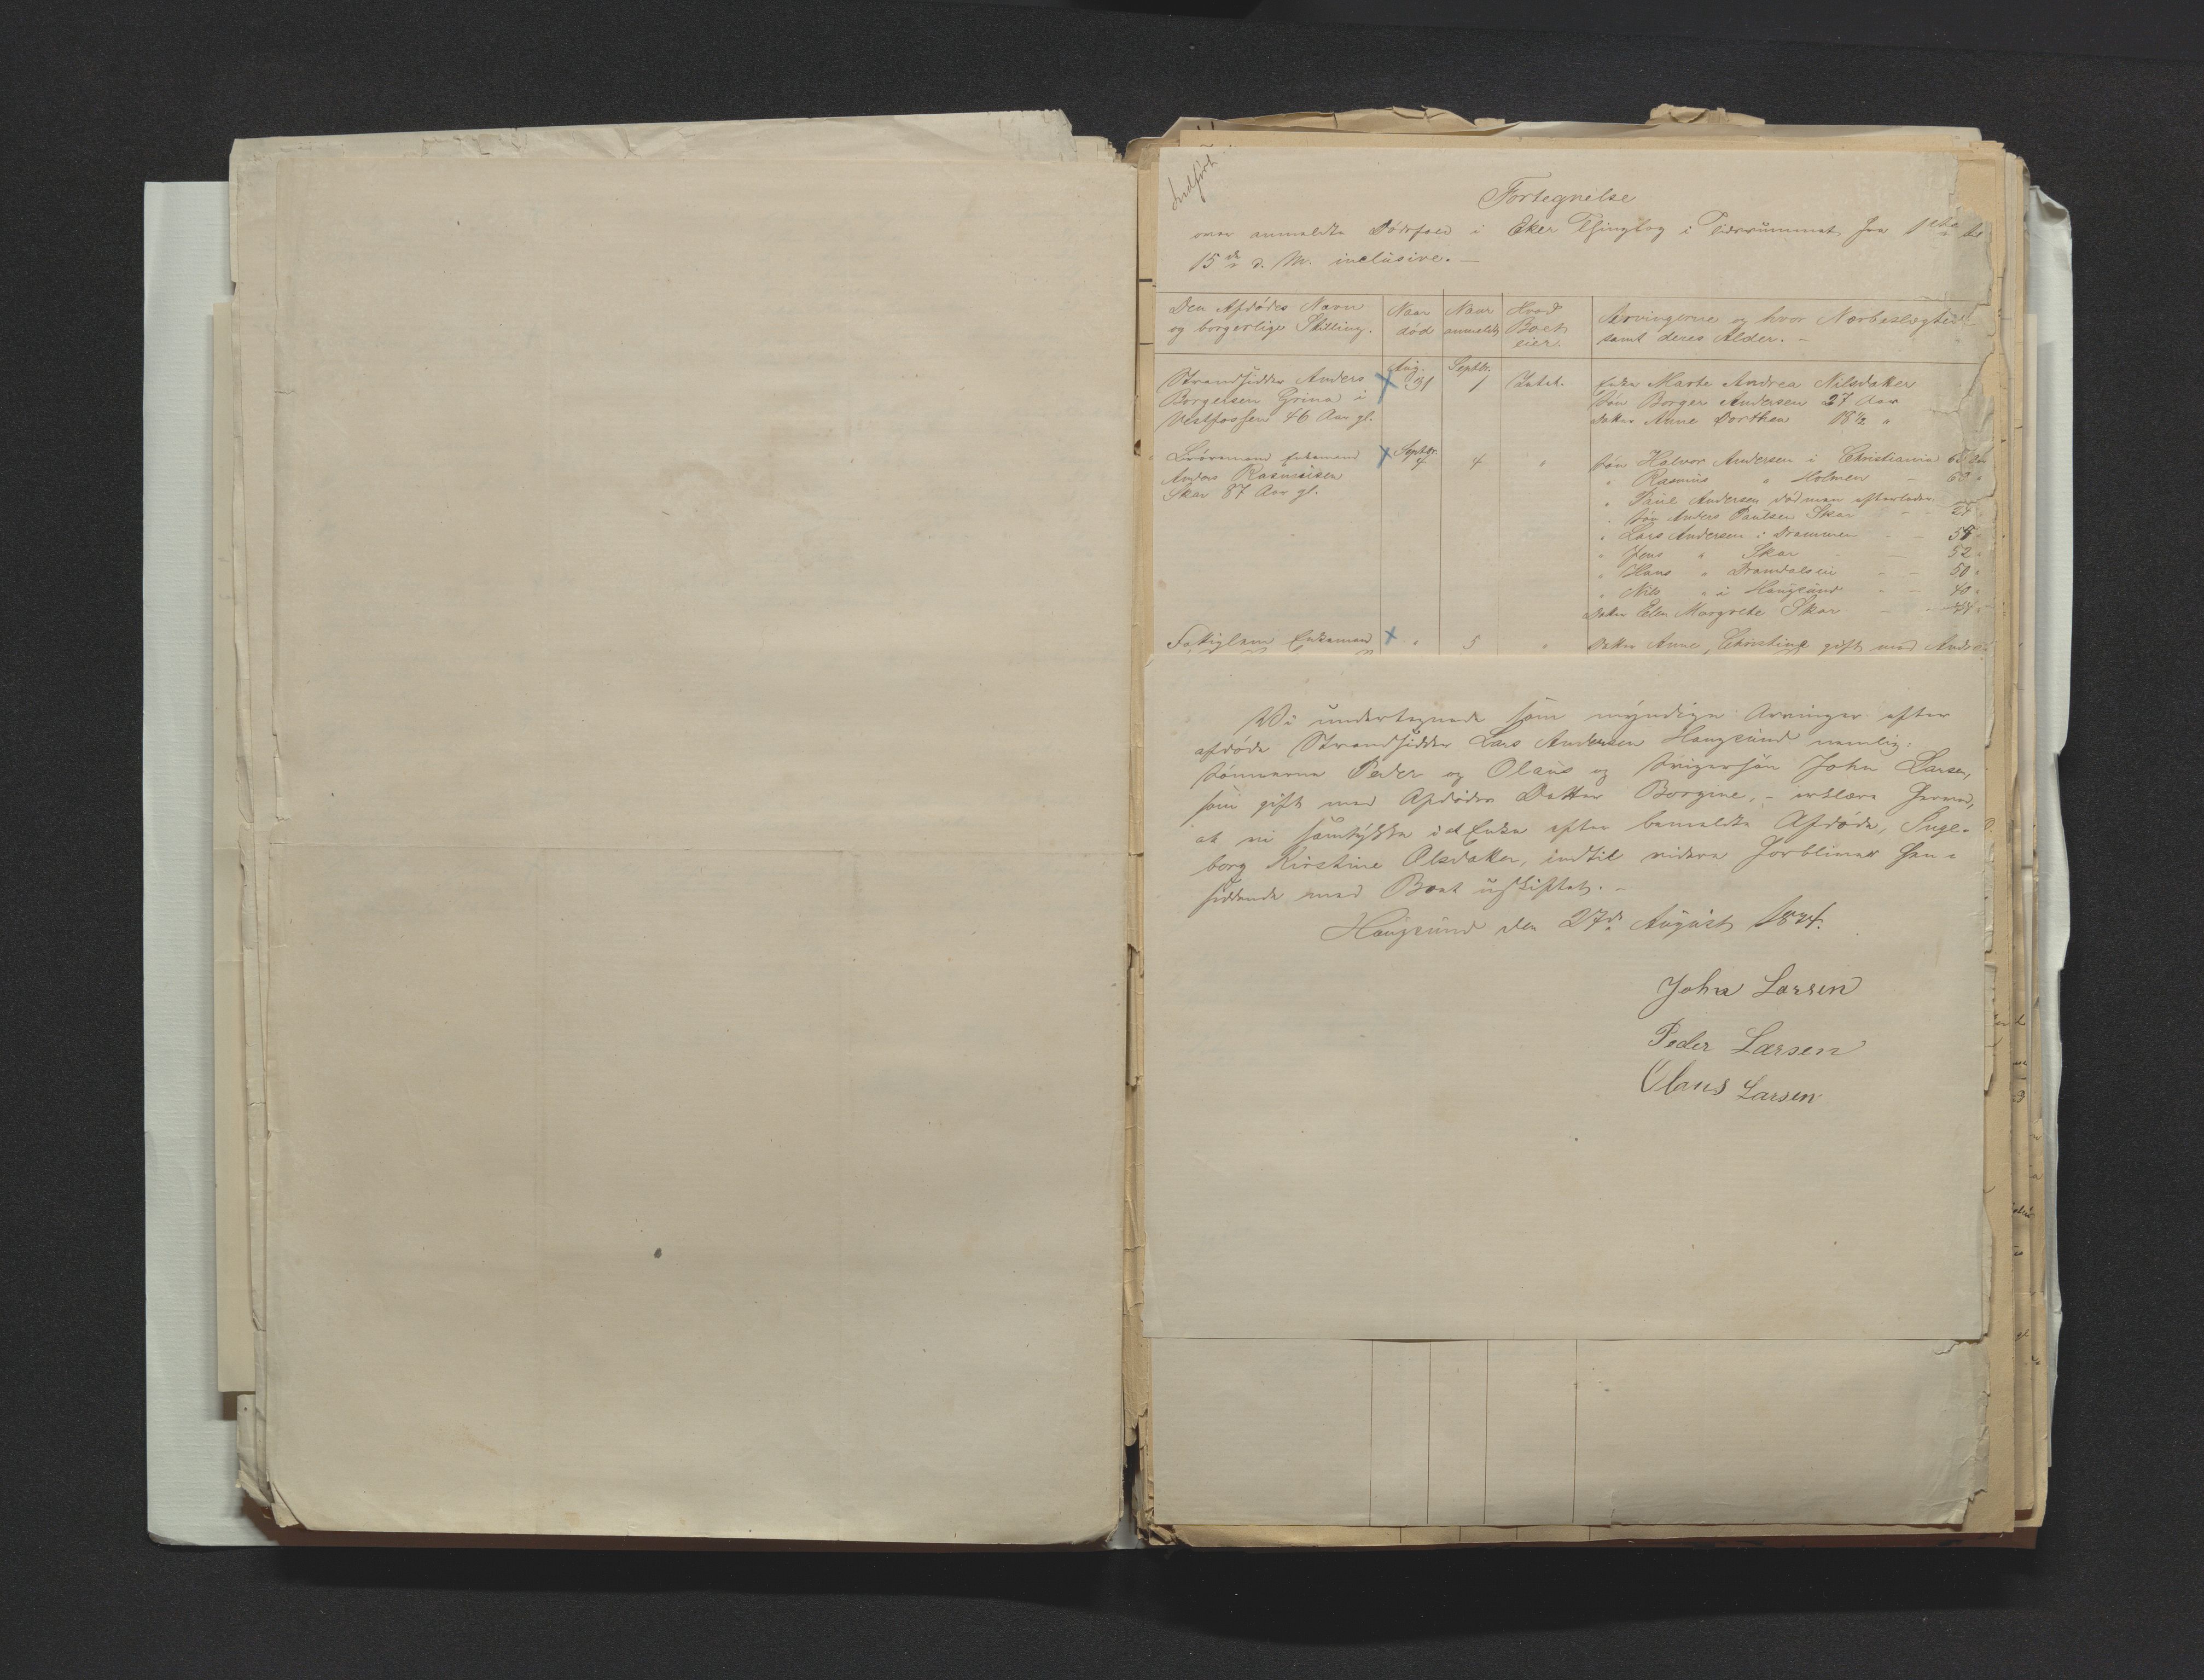 Indført
Fortegnelse
over anmeldte Dødsfald i Eker Thinglag i Tidsrummet fra 1ste til
15de d. M. inclusive. —
Den Afdødes Navn og borgerlige Stilling.
Naar død
Naar anmeldt
Hvad Boet eier.
Arvingerne og hvor Nærbeslægtede samt deres Alder. —
Strandsidder Anders
Borgersen Grina i
Vestfossen 46 Aar gl.
Aug. 31
Septbr. 1
Intet.
Enke Marte Andrea Nilsdatter
Søn Borger Andersen 27 Aar
Datter Anne Dorthea 18½ "
Enkemand
Anders Rasmussen
Skar 87 Aar gl.
Septbr.
4
"
Søn Halvor Andersen i Christiania
" Rasmus " Holmen
" Paul Andersen død men efterlader
Søn Anders Paulsen Skar
" Lars Andersen i Drammen
" Jens " Skar - 52 "
" Hans " - - 50 "
" Nils " i Haugsund - - 40 "
Datter Elen Margrete Skar
Enkemand
" 5 "
Datter Anne Christine gift med
Vi undertegnede som myndige Arvinger efter
afdøde Strandsidder Lars Andersen Haugsund nemlig:
Sønnerne Peder og Olaus og Svigersøn John Larsen,
som gift med Afdødes Datter Borgine, - erklære herved,
at vi samtykke i at Enken efter bemeldte Afdøde, Inge-
borg Kirstine Olsdatter, indtil videre forbliver hen-
siddende med Boet uskiftet. -
Haugsund den 27de August 1874.
John Larsen
Peder Larsen
Olaus Larsen